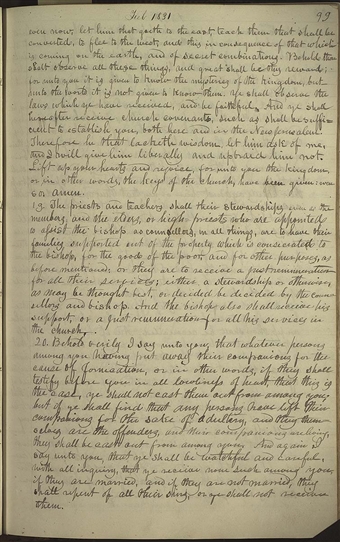 Feb 1831. 99
even now; let him that goeth to the east teach them that shall be
converted, to flee to the west, and this in consequence of that which
is coming on the earth, and of secret combinations. Behold thou
shalt observe all these things, and great shall be thy reward;
for unto you it is given to know the mysteries of the kingdom, but
unto the world it is not given to know them. Ye shall observe the
laws which ye have received, and be faithful. And ye shall
hereafter receive church covenants, such as shall be suffic-
ient to establish you, both here and in the New Jerusalem.
Therefore he that lacketh wisdom, let him ask of me,
and I will give him liberally and upbraid him not.
Lift up your hearts and rejoice, for unto you the kingdom,
or in other words, the keys of the church, have been given: even
so: amen.
19. The priests and teachers shall their stewardships, even as the
members, and the elders, or high priests who are appointed
to assist the bishop as counsellors, in all things, are to have their
families supported out of the property which is consecrated to
the bishop, for the good of the poor, and for other purposes, as
before mentioned; or they are to receive a just remuneration
for all their services; either a stewardship or otherwise,
as may be thought best, or decided be decided by the coun-
sellors and bishop. And the bishop also shall receive his
support, or a just remuneration for all his services in
the church.
20. Behold verily I say unto you, that whatever persons
among you having put away their companions for the
cause of fornication, or in other words, if they shall
testify before you in all lowliness of heart, that this is
the case, ye shall not cast them out from among you;
but if ye shall find that any persons have left their
companions for the sake of adultery, and they them-
selves are the offenders, and their companions are living,
they shall be cast out from among you. And again I
say unto you, that ye shall be watchful and careful,
with all inquiry, that ye receive none such among you
if they are married, and if they are not married, they
shall repent of all their sins, or ye shall not receive
them.